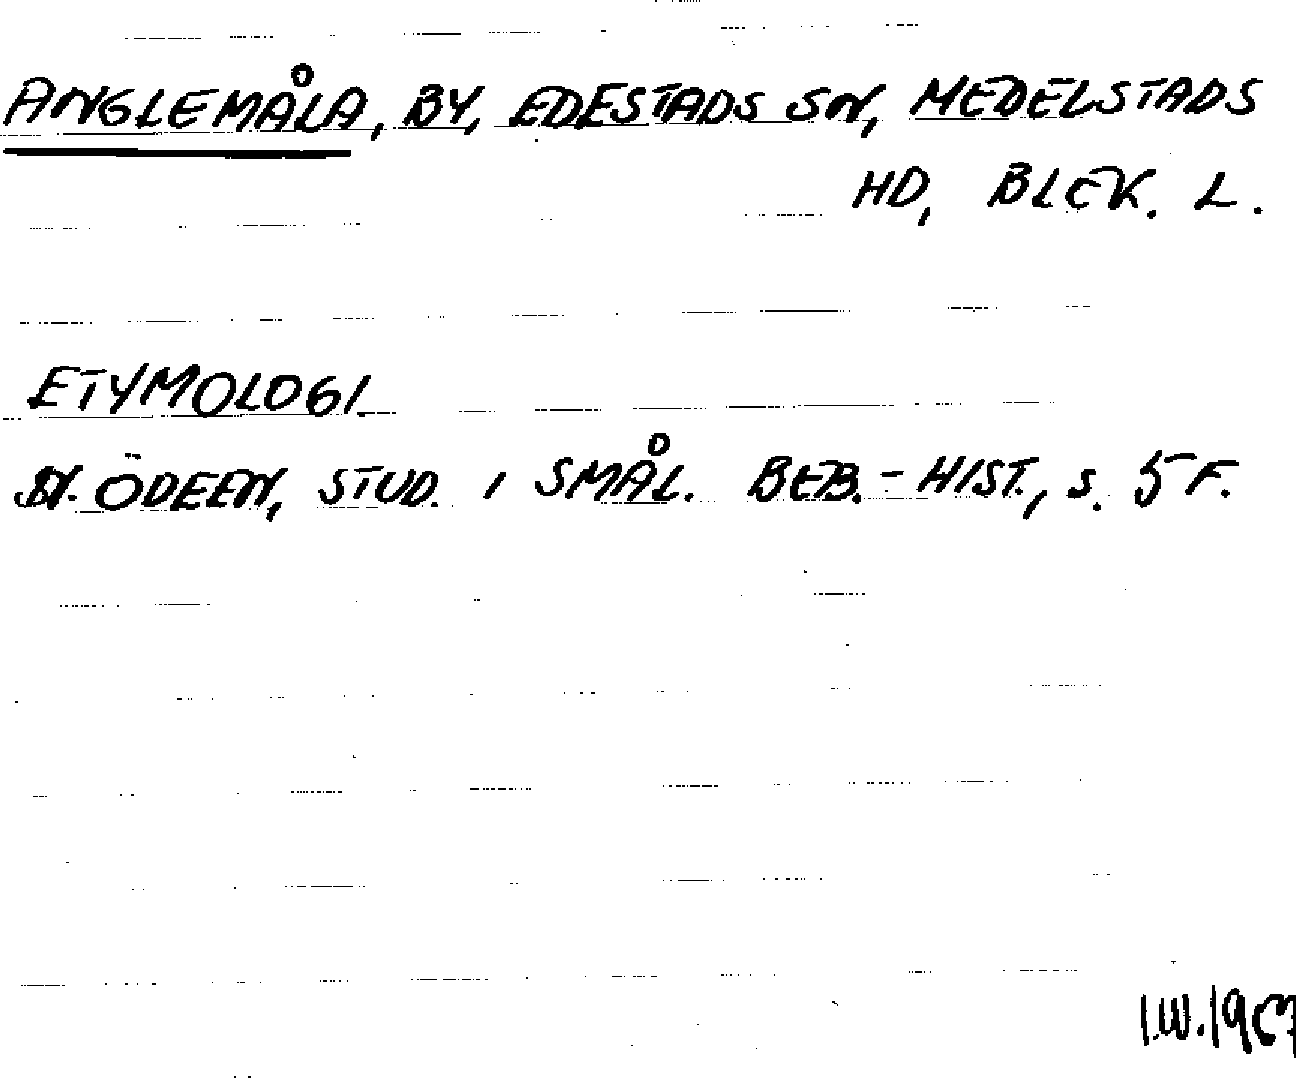 ANGLEMÅLA, BY, EDESTADS SN, MEDELSTADS
HD, BLEK. L.
ETYMOLOGI
N. ÖDEEN, STUD. I SMÅL. BEB.-HIST., S. 5 F.
I.W.